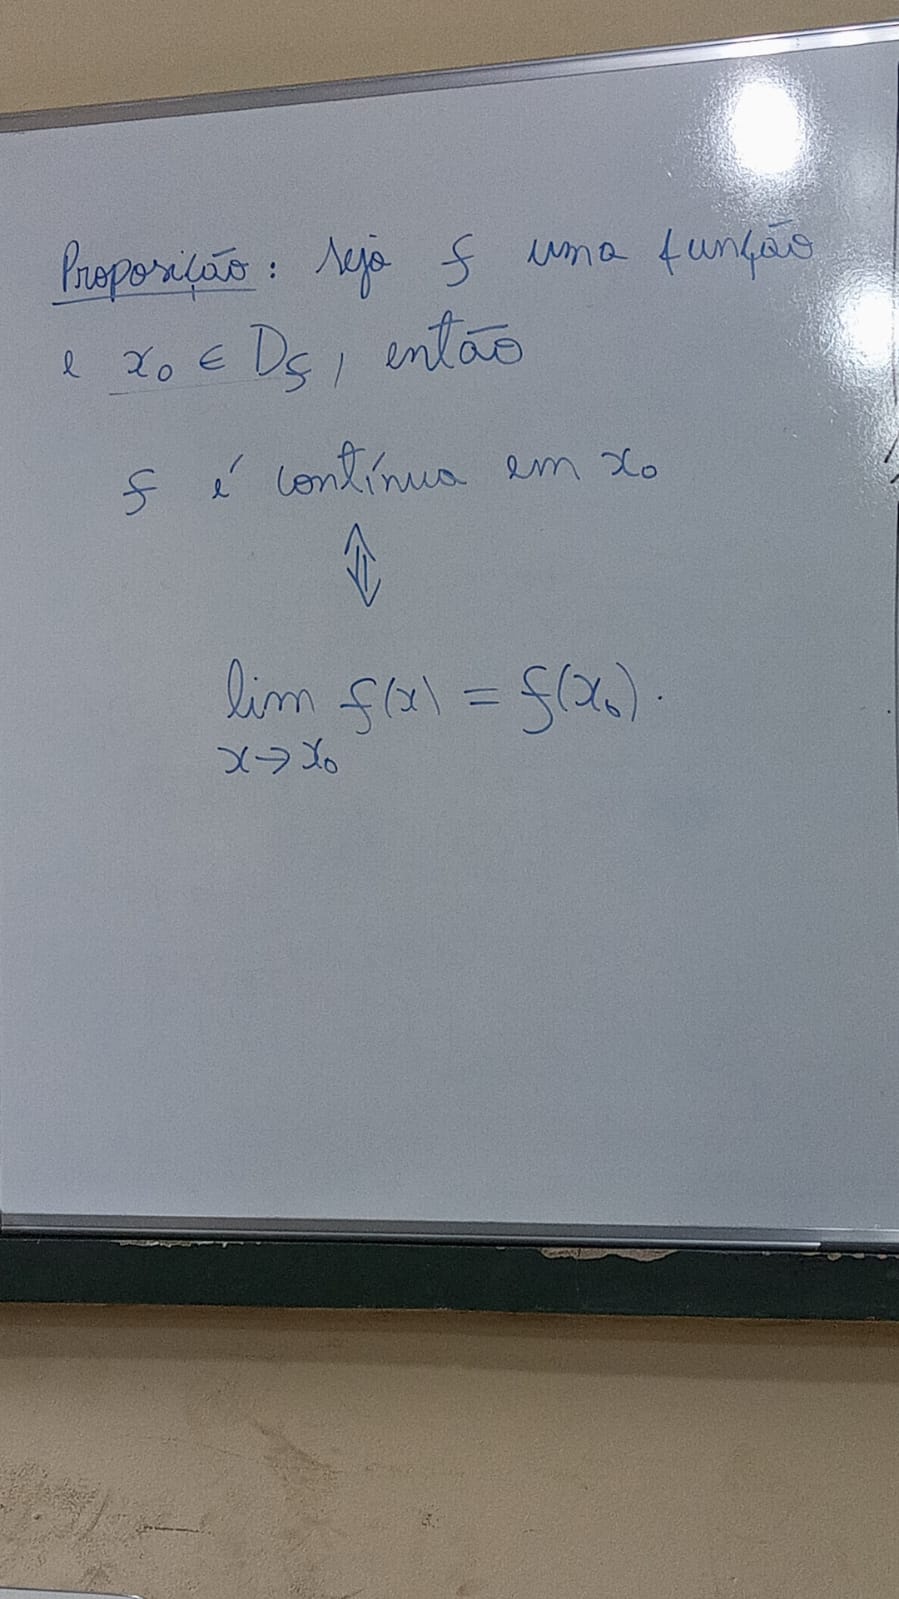 Proposição: seja f uma função
e x₀ ∈ D_f, então
f é contínua em x₀
⇕
lim f(x) = f(x₀).
x→x₀